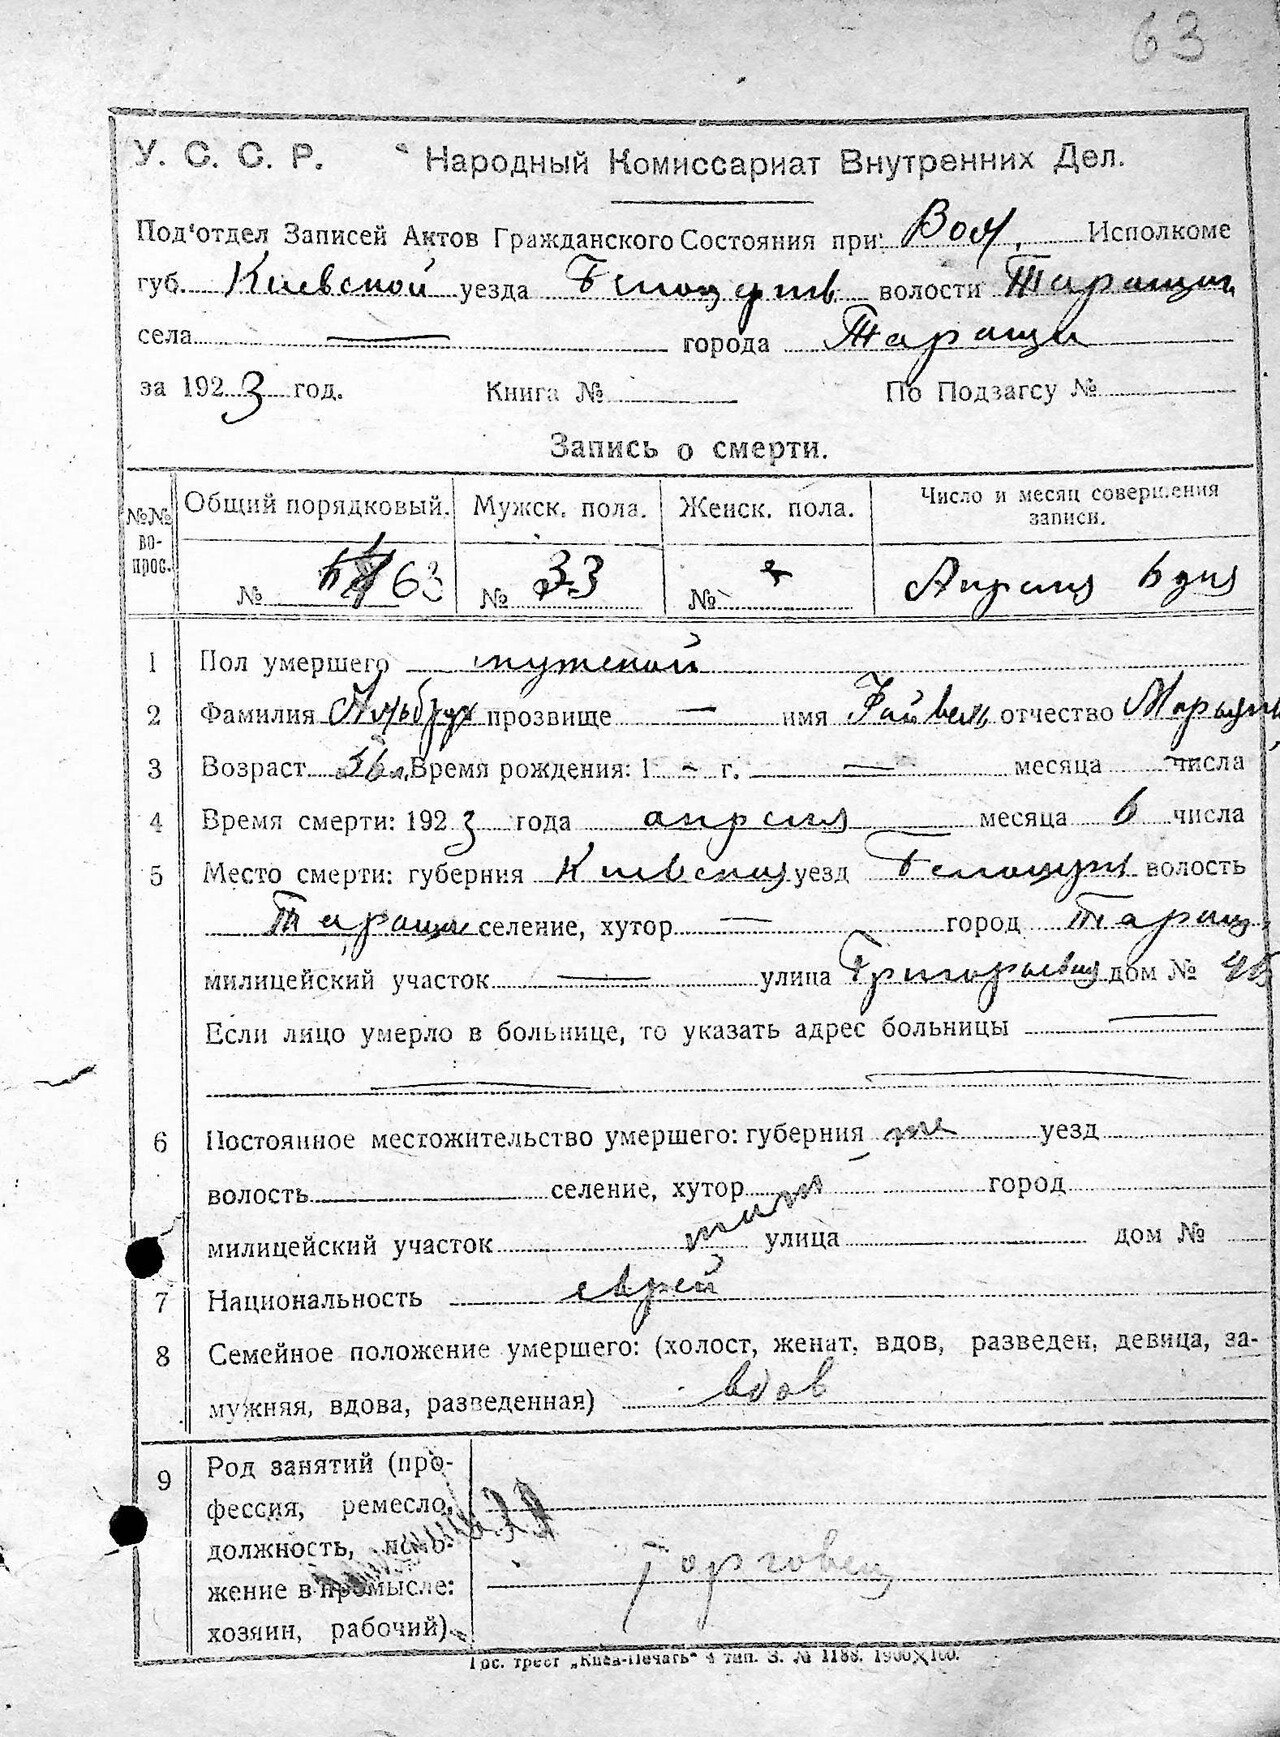 63
У. С. С. Р. Народный Комиссариат Внутренних Дел.
Под'отдел Записей Актов Гражданского Состояния при: Вол. Исполкоме
губ. Киевской уезда Белоцерков волости Таращан
села — города Тараща
за 1923 год. Книга № По Подзагсу №
Запись о смерти.
№№ вопрос. Общий порядковый. Мужск. пола. Женск. пола. Число и месяц совершения записи.
№ 63 № 33 № Апреля 6 дня
1 Пол умершего мужской
2 Фамилия прозвище — имя Файвель отчество
3 Возраст Время рождения: 1 - г. — месяца числа
4 Время смерти: 1923 года апреля месяца 6 числа
5 Место смерти: губерния Киевская уезд Белоцерк волость
Тараща селение, хутор — город Таращ
милицейский участок — улица Григорьевская дом №
Если лицо умерло в больнице, то указать адрес больницы —
6 Постоянное местожительство умершего: губерния уезд
волость селение, хутор город
милицейский участок улица дом №
7 Национальность еврей
8 Семейное положение умершего: (холост, женат, вдов, разведен, девица, за-
мужняя, вдова, разведенная) вдов
9 Род занятий (про-
фессия, ремесло,
должность, поло-
жение в промысле: Торговец
хозяин, рабочий)
Гос. трест „Киев-Печать" 4 тип. З. № 1188. 1900×100.